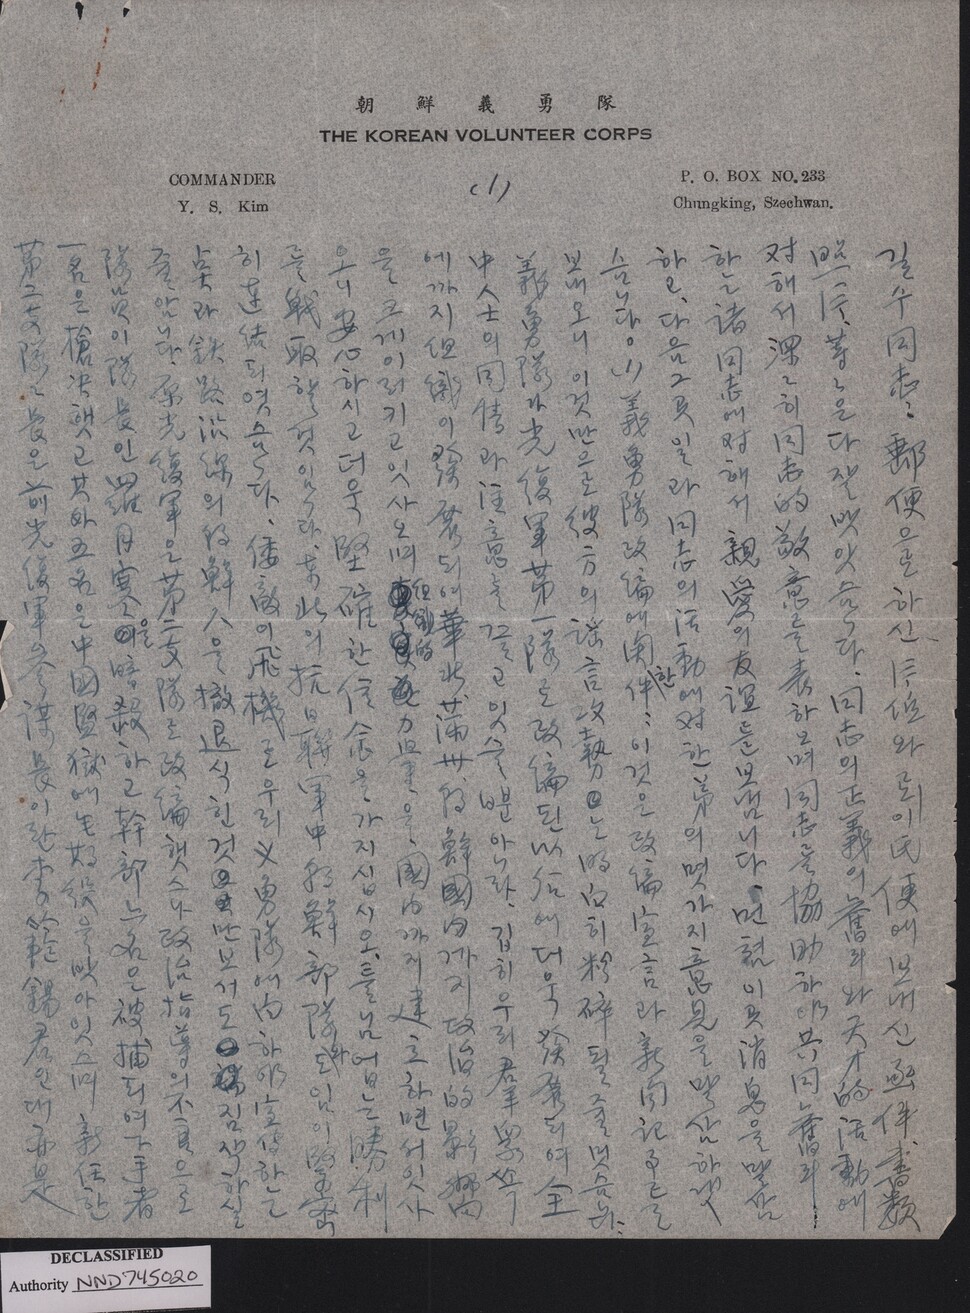 朝鮮義勇隊
THE KOREAN VOLUNTEER CORPS
COMMANDER
Y. S. Kim
(1)
P. O. BOX NO. 233
Chungking, Szechwan.
길수同志: 郵便으로하신 와 李氏便에보내신 函件書数
은다잘밧앗슴니다. 同志의正義의奮斗와天才的活動에
对해서 深근히同志的敬意를表하며同志를協助하야共同奮斗
하는諸同志에对해서 親愛의友誼를보냄니다. 먼첨이곳消息을말삼
하고, 다음그곳일과同志의活動에对한弟의몃가지意見을말삼하겟
슴니다. (1) 義勇隊改編에関한件: 이것은改編宣言과新聞記事를
보내오니이것만으로彼方의謠言攻勢는明白히粉碎될줄밋슴니다.
義勇隊가光復軍第一隊로改編된以后에더욱發展되여全
中人士의同情과注意를끌고잇슬뿐아니라, 깁히우리群衆쏙
에까지組織이發展되여華北満州的韓國内까지政治的影響
을크게이르키고잇사오며 組織的力量을國内까지建立하면서잇사
오니安心하시고더욱堅確한信念을가지십시오. 틀님업는勝利
를戰取할것임니다. 華北의抗日聯軍中朝鮮部隊와도임이緊密
히連結되엿슴니다. 倭敵이飛機로우리义勇隊에向하야宣伝하는
鉄路沿線의朝鮮人을撤退식힌것만보거도짐작하실
줄암니다. 原光復軍은第二支隊로改編햇스나政治指導의不良으로
隊員이隊長인羅月寒을暗殺하고幹部六名은被捕되여下手者
一名은槍决햇고其外五名은中國監獄에 밧아잇스며 新任한
第二支隊長은前光復軍参謀長이란李範錫君인대亦是
DECLASSIFIED
Authority NND 745020